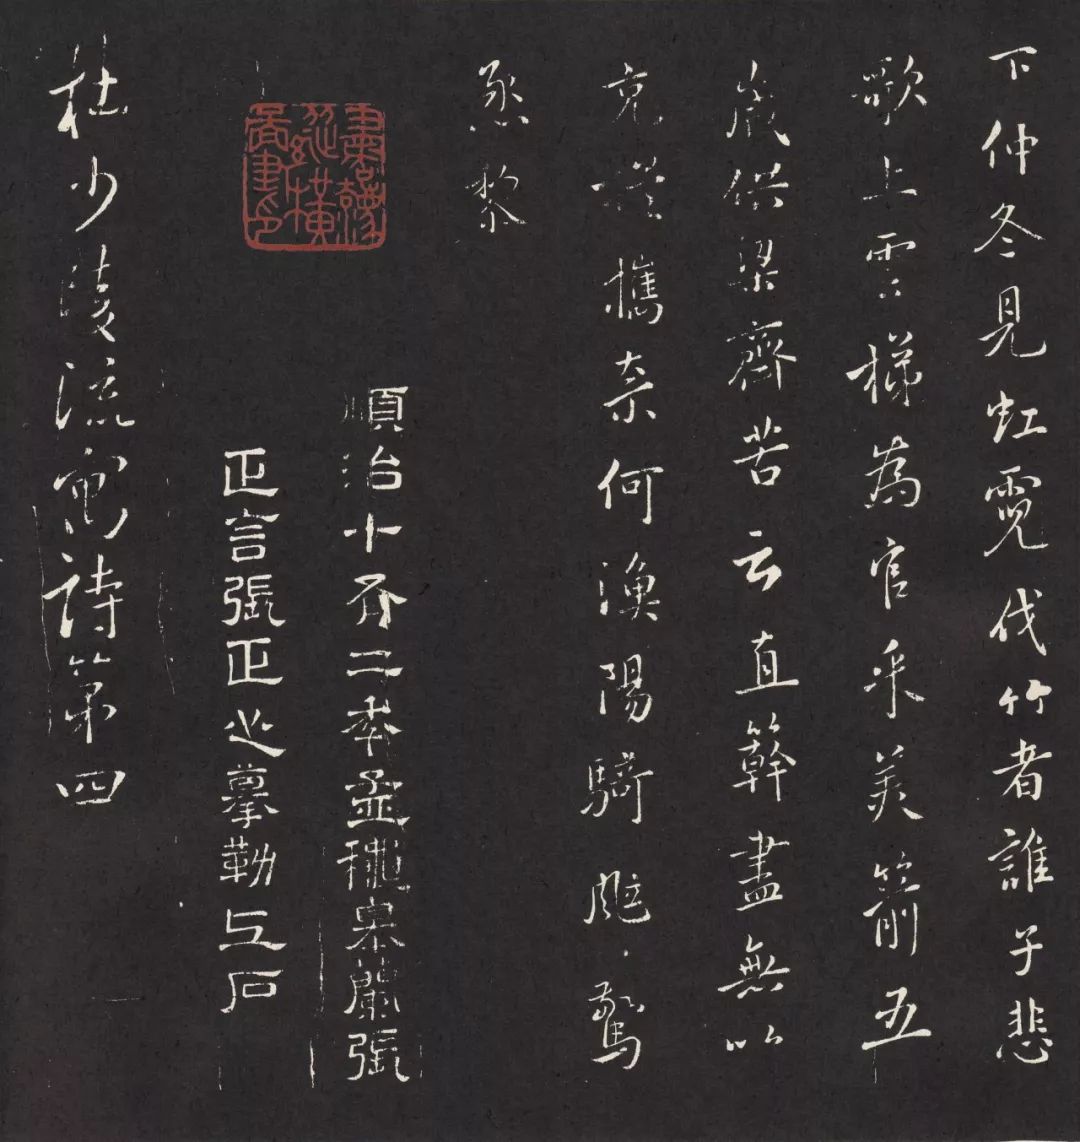 下仲冬見虹霓伐竹者誰子悲
歌上雲梯為官采美箭五
歲供梁齊苦云直簳盡無以
充提攜奈何漁陽騎颯、驚
烝黎
順治十有二年孟穐皋蘭張
正言張正心摹勒上石
杜少陵流寓詩第四